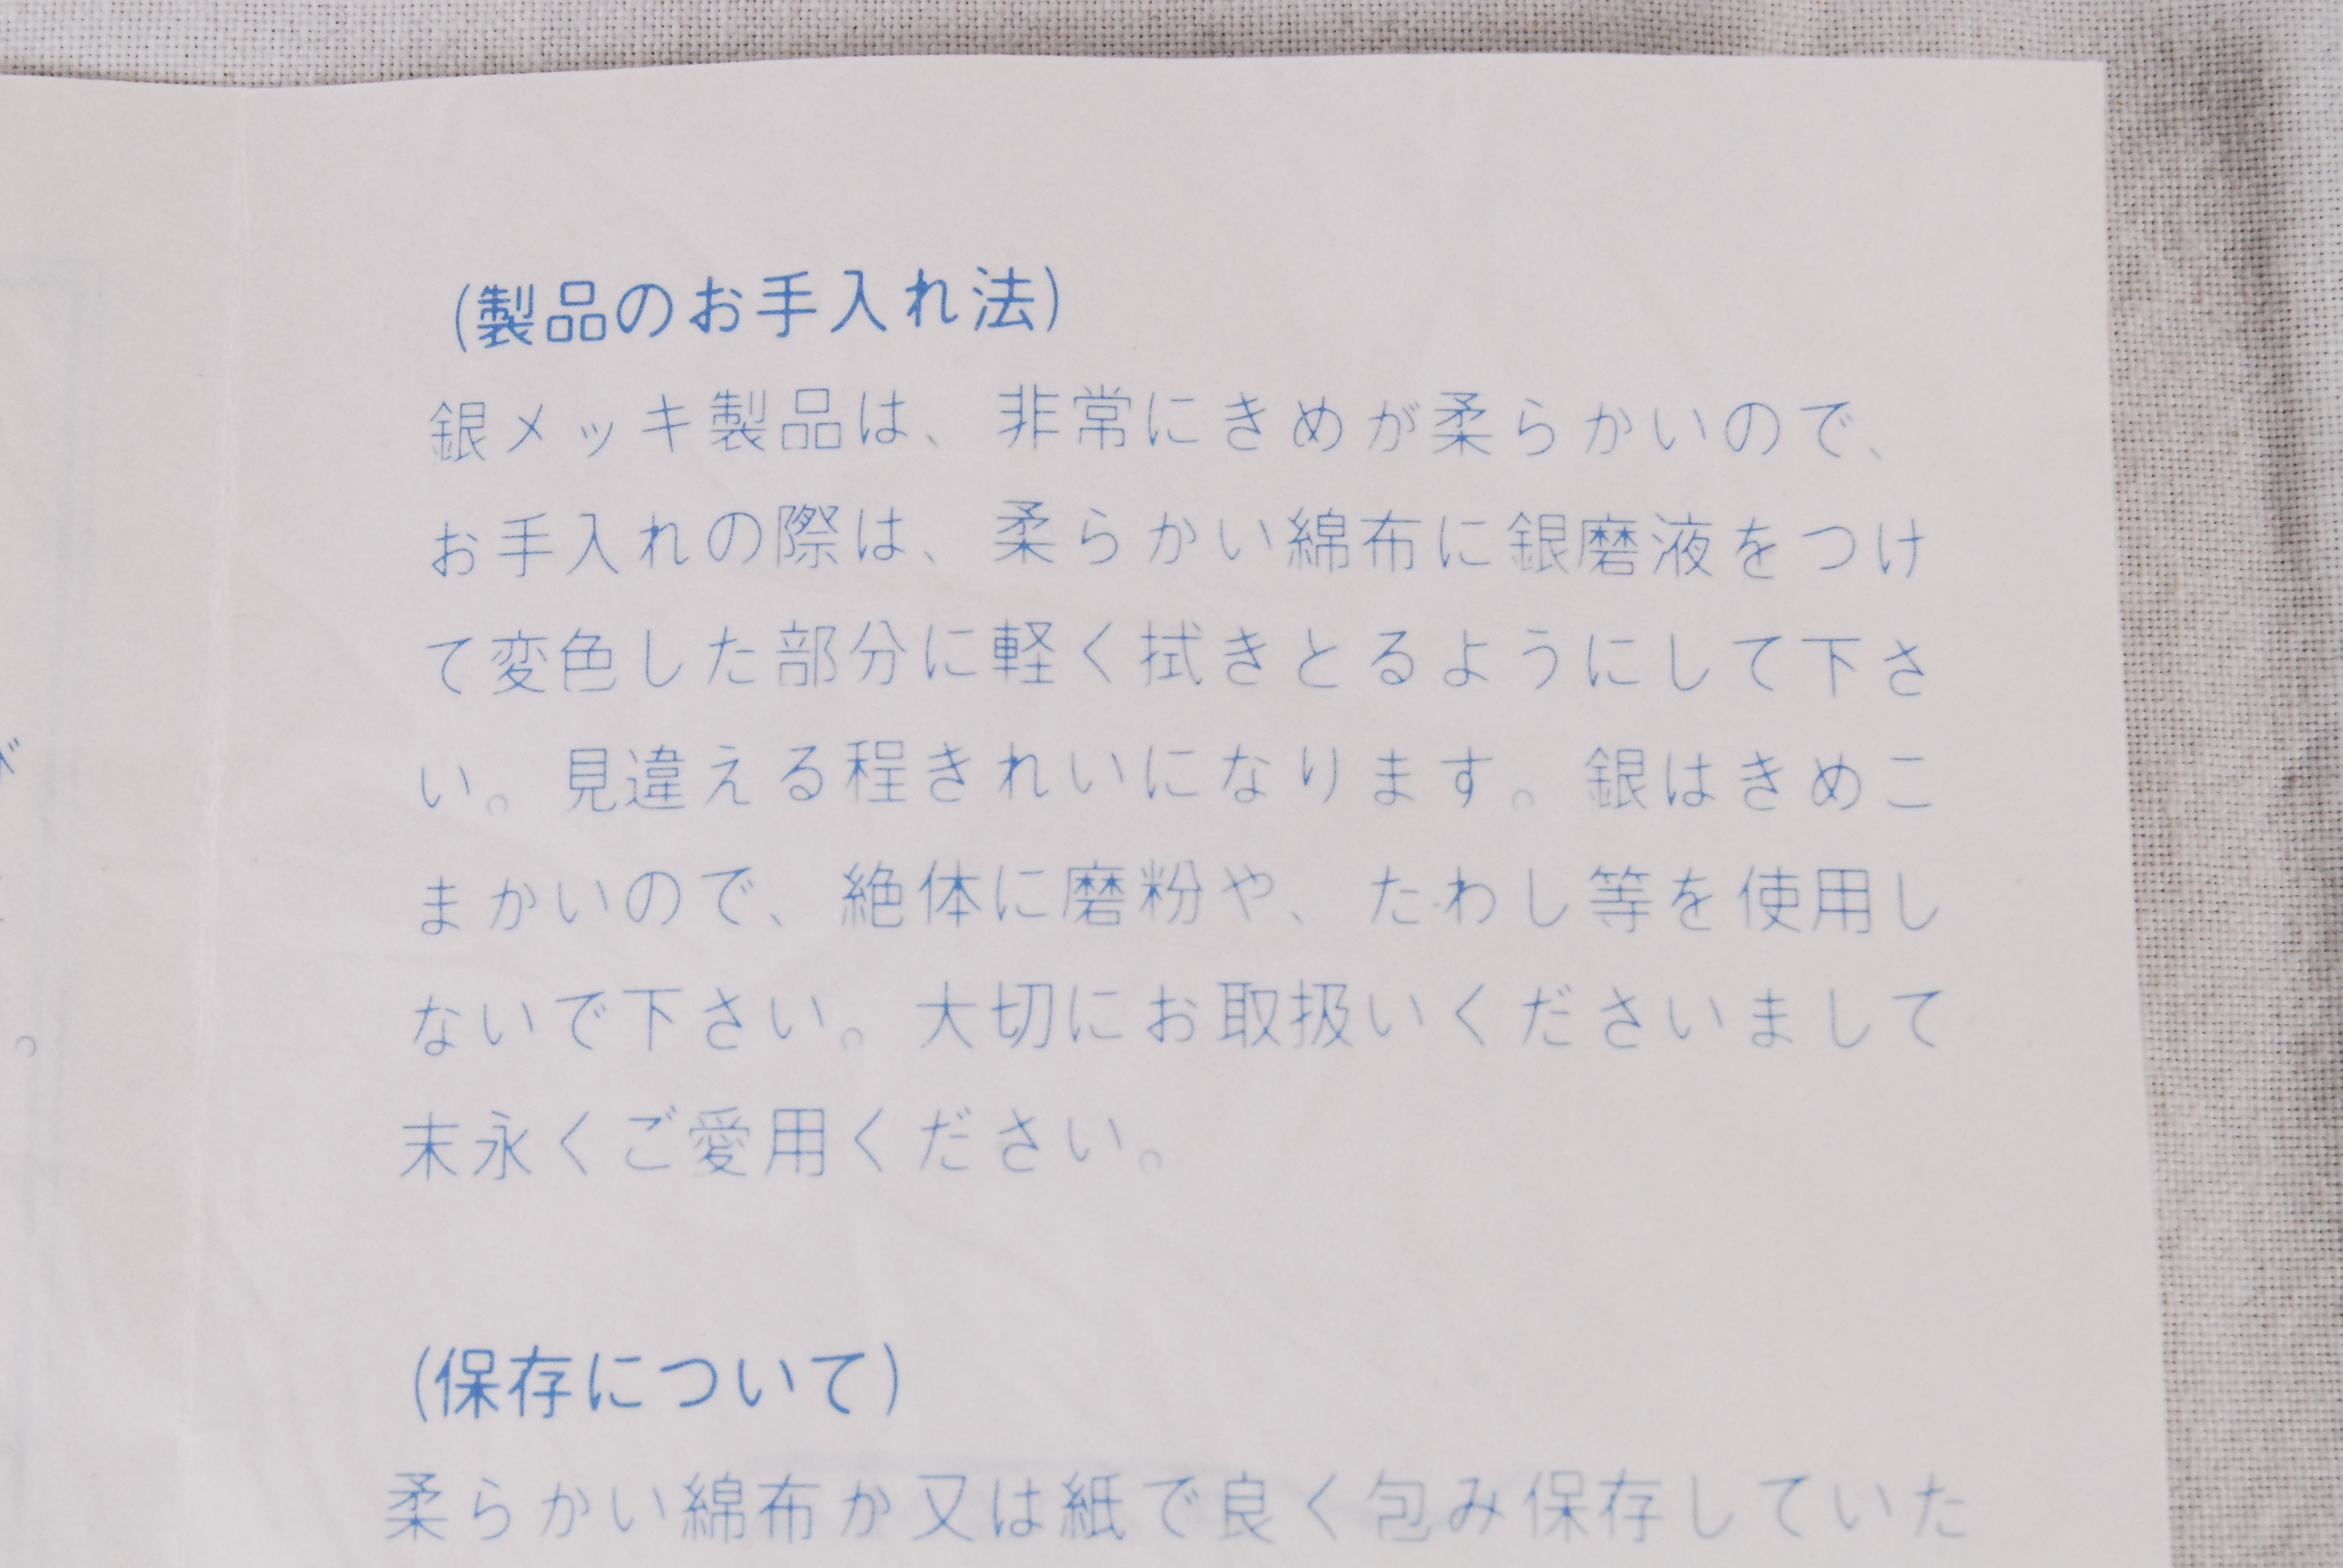 (製品のお手入れ法)
銀メッキ製品は、非常にきめが柔らかいので、
お手入れの際は、柔らかい綿布に銀磨液をつけ
て変色した部分に軽く拭きとるようにして下さ
い。見違える程きれいになります。銀はきめこ
まかいので、絶体に磨粉や、たわし等を使用し
ないで下さい。大切にお取扱いくださいまして
末永くご愛用ください。
(保存について)
柔らかい綿布か又は紙で良く包み保存していた